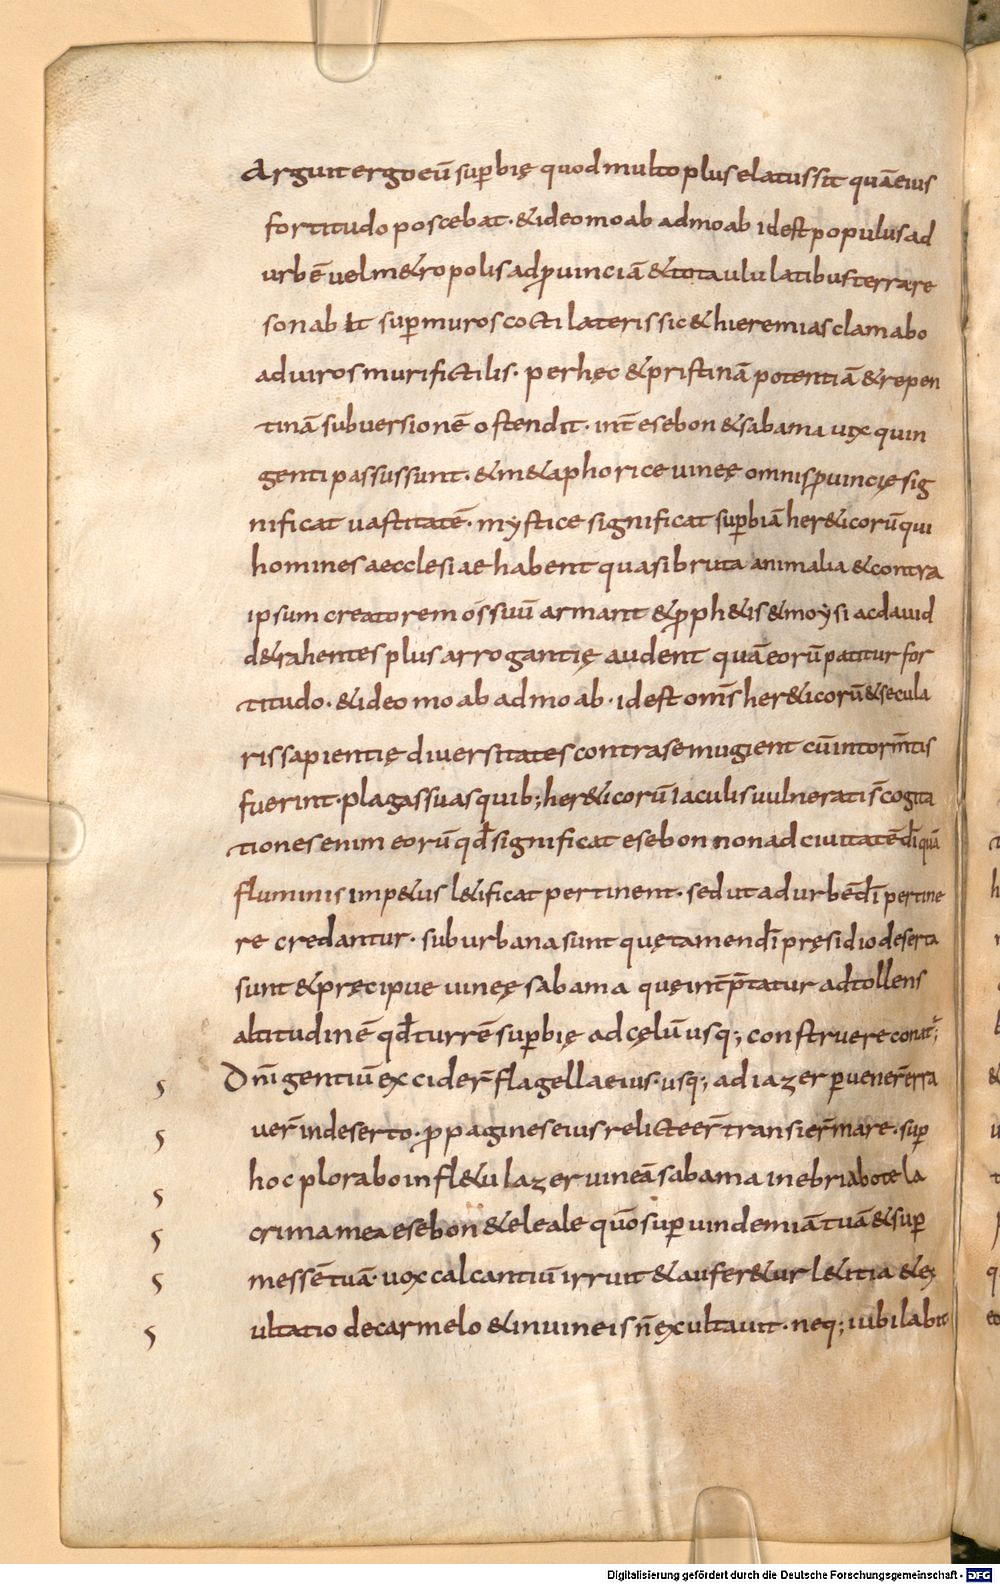 Arguit ergo eū suꝑbię quod multo plus elatus sit quā eius
fortitudo poscebat · & ideo moab ad moab id est populus ad
urbē uel m&ropolis ad ꝓuinciā & tota ululatibus terra re
sonabit suꝑ muros cocti lateris sic & hieremias clamabo
ad uiros muri fictilis · per hęc & pristinā potentiā & repen
tinā subuersionē ostendit · int̄ esebon & sabama uix quin
genti passus sunt · & m&aphorice uineę omnis ꝓuincię sig
nificat uastitatē · mystice significat suꝑbiā her&icorū qui
homines aecclesiae habent quasi bruta animalia & contra
ipsum creatorem os suū armant & ꝓph&is & moysi ac dauid
d&rahentes plus arrogantię audent quā eorū patitur for
titudo · & ideo moab ad moab · id est om̄s her&icorū & secula
ris sapientię diuersitates contra se mugient cū in torm̄tis
fuerint · plagas suas quib; her&icorū iaculis uulneratis cogita
tiones enim eorū qd̄ significat esebon non ad ciuitatē dī quā
fluminis imp&us l&ificat pertinent · sed ut ad urbē dī pertine
re credantur · suburbana sunt quę tamen dī pręsidio deserta
sunt & pręcipue uineę sabama quę int̄p̄tatur adtollens
altitudinē qd̄ turrē suꝑbię ad cęlū usq; construere conat̄;
Dn̄i gentiū exciderr̄ flagella eius · usq; ad iazer ꝑuener̄ erra
uer̄ in deserto · ꝓpagines eius relicte er̄ transier̄ mare · suꝑ
hoc plorabo in fl&u iazer uineā sabama inebriabo te la
crima mea esebon & eleale quō suꝑ uindemiā tuā & suꝑ
messē tuā · uox calcantiū irruit & aufer&ur l&itia & ex
ultatio de carmelo & in uineis n̄ excultauit · neq; iubilabit